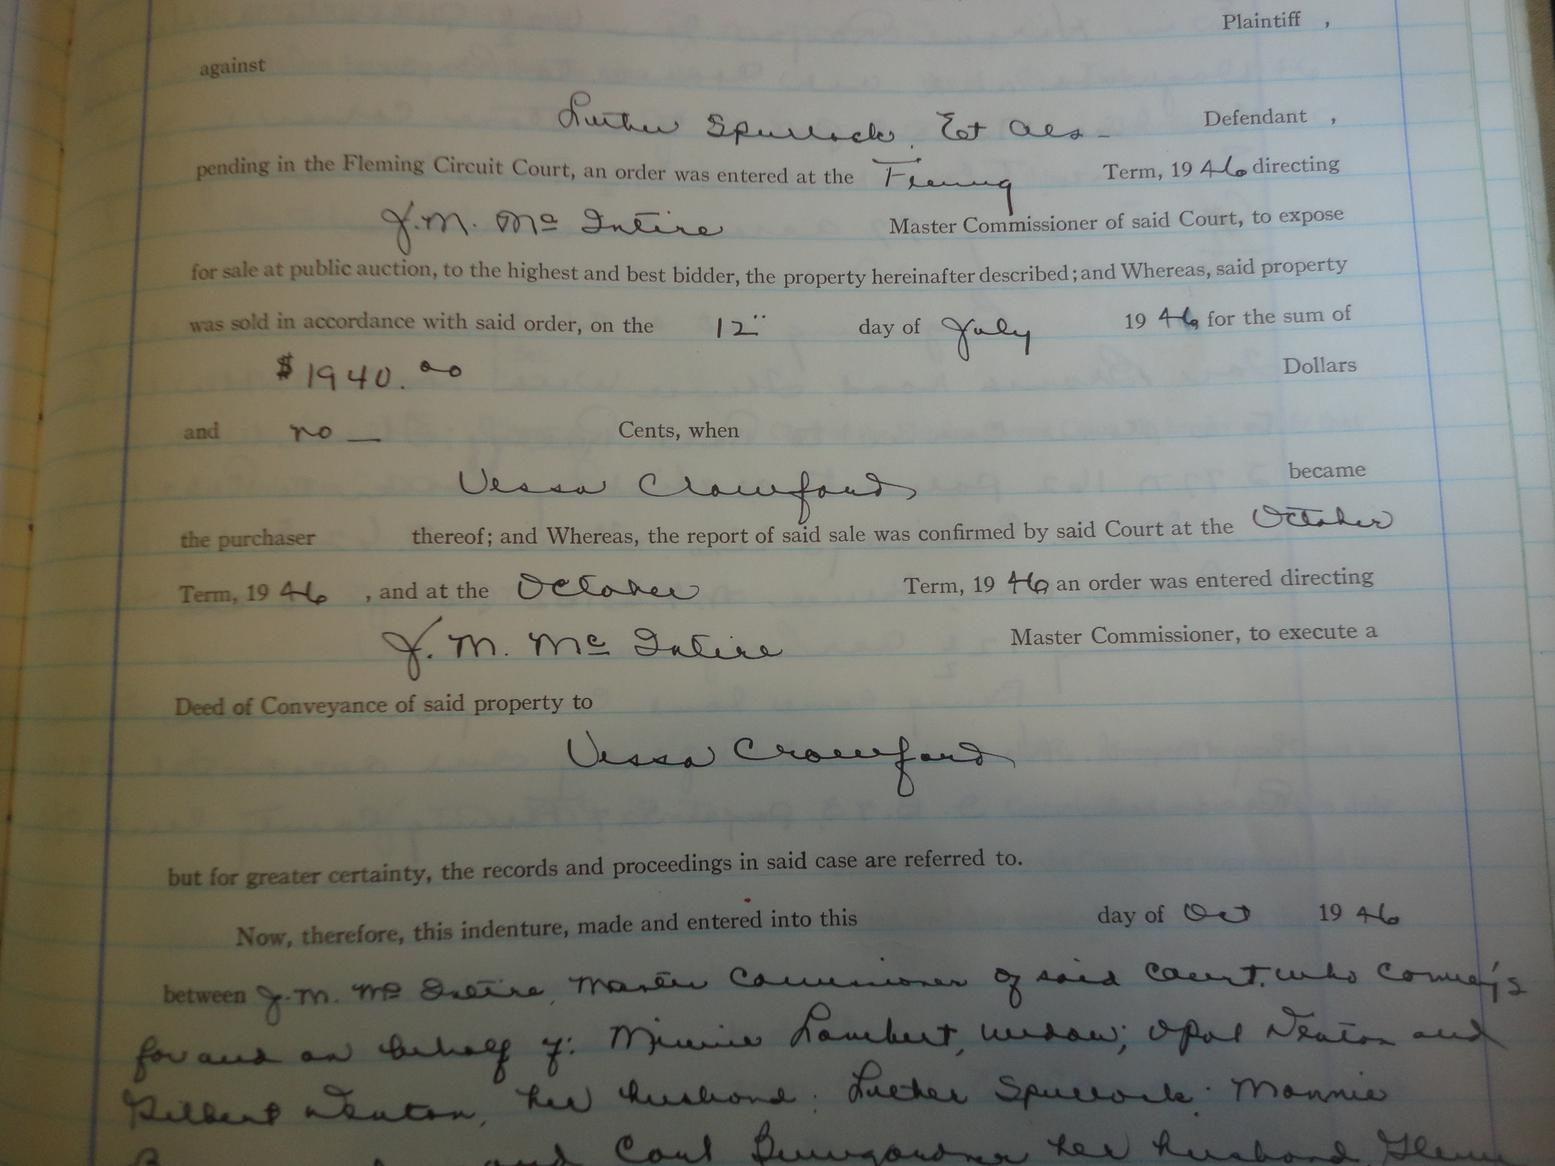 Plaintiff ,
against
Luther Spurlock, Et Als - Defendant ,
pending in the Fleming Circuit Court, an order was entered at the Fleming Term, 19 46 directing
J. M. Mc Intire Master Commissioner of said Court, to expose
for sale at public auction, to the highest and best bidder, the property hereinafter described; and Whereas, said property
was sold in accordance with said order, on the 12" day of July 19 46 for the sum of
$1940.00 Dollars
and no — Cents, when
Vessa Crawford became
the purchaser thereof; and Whereas, the report of said sale was confirmed by said Court at the October
Term, 19 46 , and at the October Term, 19 46 an order was entered directing
J. M. Mc Intire Master Commissioner, to execute a
Deed of Conveyance of said property to
Vessa Crawford
but for greater certainty, the records and proceedings in said case are referred to.
Now, therefore, this indenture, made and entered into this day of Oct 19 46
between J. M. Mc Intire, Master Commissioner of said Court, who convey's
for and on behalf of: Minnie Lambert, widow; Opal Newton and
Gilbert Newton, her husband; Luther Spurlock; Mannie
and Carl Bumgardner her husband, Glenn